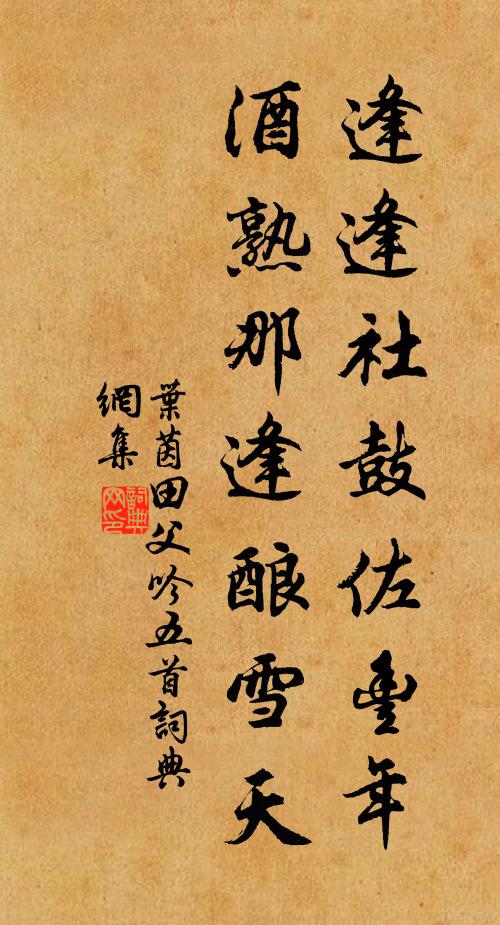 逢逢社鼓佐豐年
酒熟那逢酿雪天
葉茵田父吟五首詞典
網集
詞典
网印